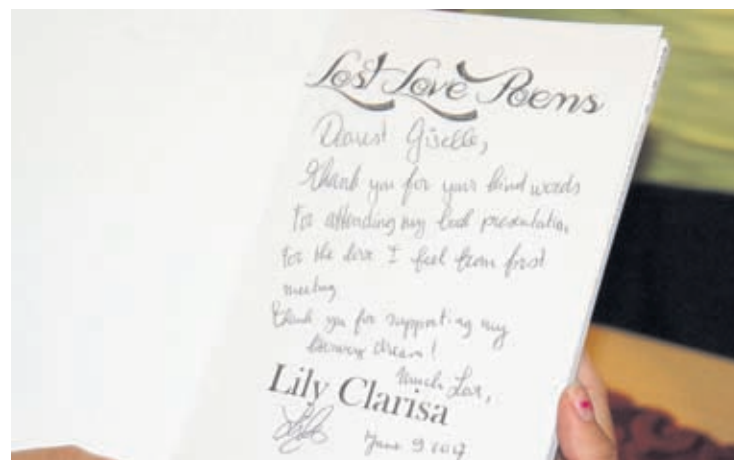 Lost Love Poems
Dearest Giselle,
Thank you for your kind words
for attending my book presentation
for the love I feel from first
meeting
Thank you for supporting my
dream!
Much Love,
Lily Clarisa
June 9